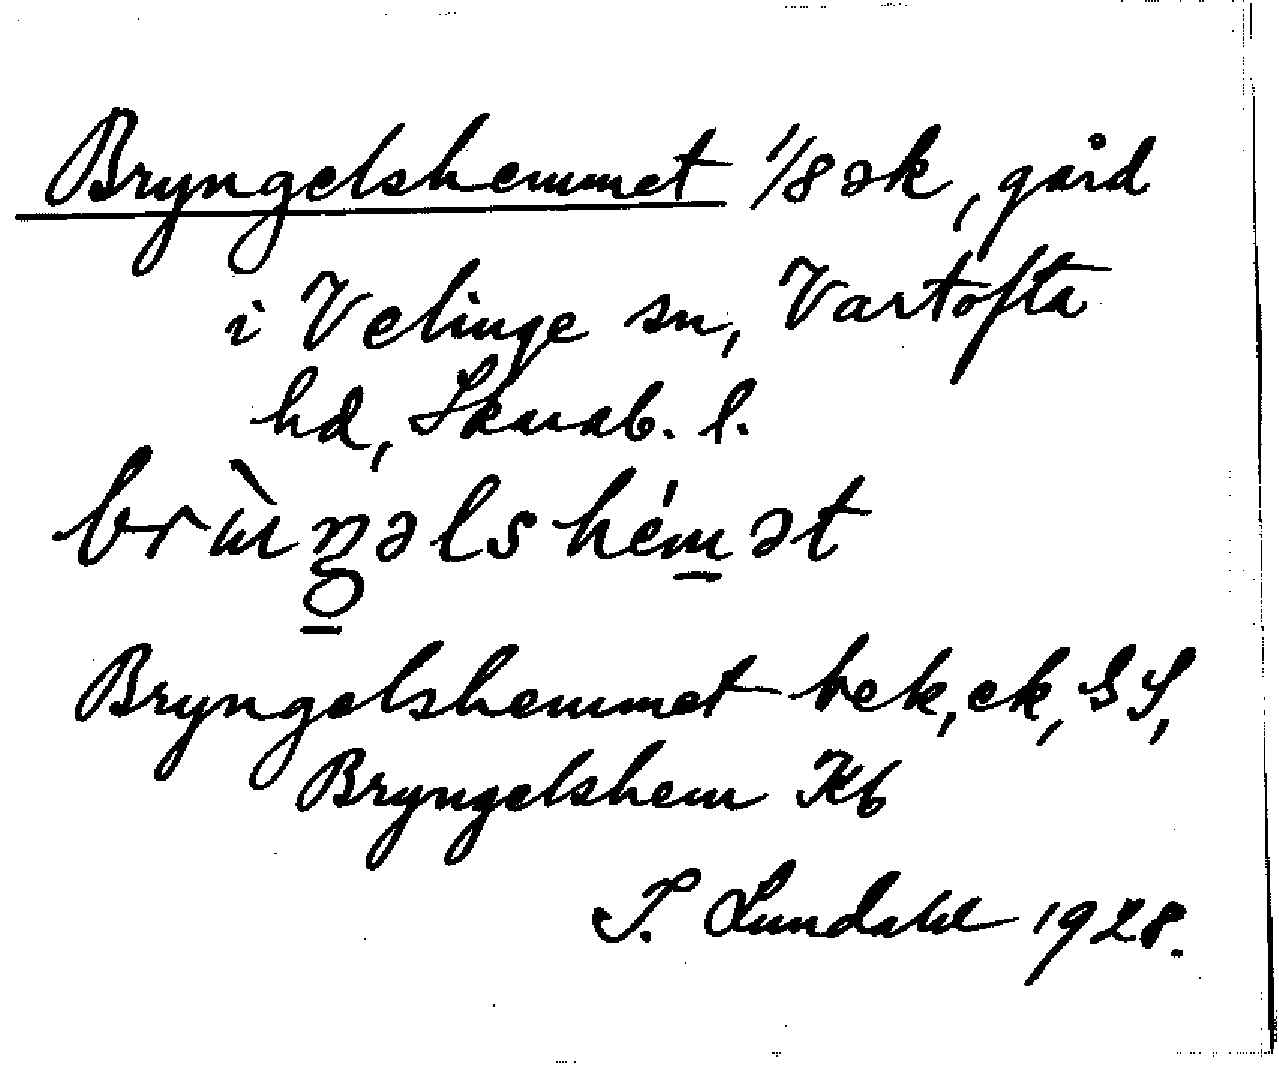 Bryngelshemmet 1/8 sk, gård
i Velinge sn, Vartofta
hd, Skarab. l.
Bryngelshemmet bek, ek, GS,
Bryngelshem Kb
I. Lundahl 1928.